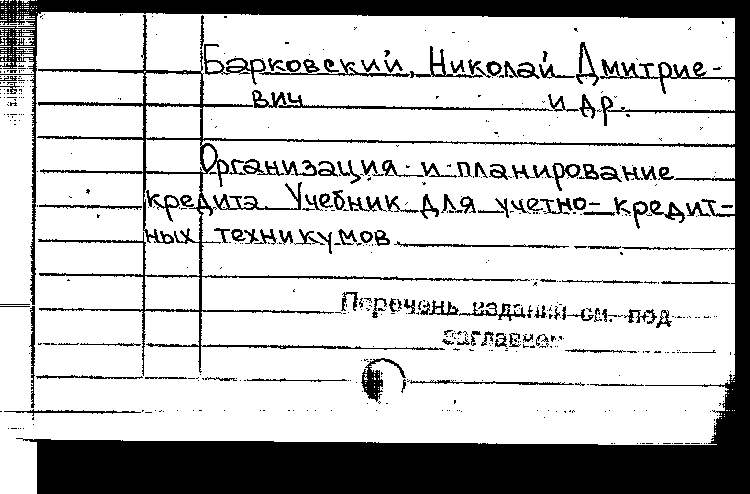 Барковский, Николай Дмитрие-
вич и др.
Организация и планирование
кредита. Учебник для учетно-кредит-
ных техникумов.
Перечень изданий см. под
заглавием